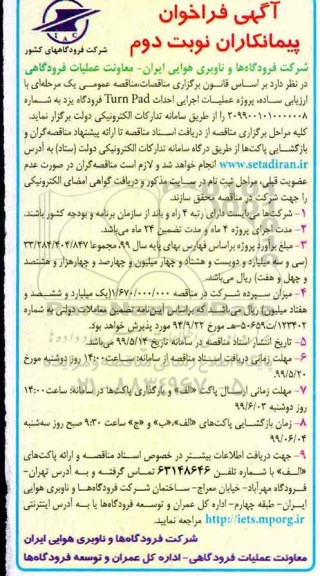 آگهی فراخوان
پیمانکاران نوبت دوم
شرکت فرودگاههای کشور
شرکت فرودگاه‌ها و ناوبری هوایی ایران- معاونت عملیات فرودگاهی
در نظر دارد بر اساس قانون برگزاری مناقصات،مناقصه عمومی یک مرحله‌ای با
ارزیابی ساده، پروژه عملیات اجرایی احداث Turn Pad فرودگاه یزد به شماره
۲۰۹۹۰۰۱۰۱۰۰۰۰۰۰۸ را از طریق سامانه تدارکات الکترونیکی دولت برگزار نماید.
کلیه مراحل برگزاری مناقصه از دریافت اسناد مناقصه تا ارائه پیشنهاد مناقصه‌گران و
بازگشایی پاکت‌ها از طریق درگاه سامانه تدارکات الکترونیکی دولت (ستاد) به آدرس
www.setadiran.ir انجام خواهد شد و لازم است مناقصه‌گران در صورت عدم
عضویت قبلی، مراحل ثبت نام در سایت مذکور و دریافت گواهی امضای الکترونیکی
را جهت شرکت در مناقصه محقق سازند.
۱- شرکت‌ها می‌بایست دارای رتبه ۴ راه و باند از سازمان برنامه و بودجه کشور باشند.
۲- مدت اجرای پروژه ۴ ماه و مدت تضمین ۲۴ ماه می‌باشد.
۳- مبلغ برآورد پروژه براساس فهارس بهای پایه سال ۹۹، مجموعا ۳۳/۲۸۴/۴۰۴/۸۴۷
(سی و سه میلیارد و دویست و هشتاد و چهار میلیون و چهارصد و چهارهزار و هشتصد
و چهل و هفت) ریال می‌باشد.
۴- میزان سپرده شرکت در مناقصه ۱/۶۷۰/۰۰۰/۰۰۰(یک میلیارد و ششصد و
هفتاد میلیون) ریال می‌باشد که براساس آیین‌نامه تضمین معاملات دولتی به شماره
۱۲۳۴۰۲/ت۵۰۶۵۹هـ مورخ ۹۴/۹/۲۲ مورد پذیرش خواهد بود.
۵- تاریخ انتشار اسناد مناقصه در سامانه تاریخ ۹۹/۵/۱۴ می‌باشد.
۶- مهلت زمانی دریافت اسناد مناقصه از سامانه: ساعت۱۴:۰۰ روز دوشنبه مورخ
۹۹/۵/۲۰.
۷- مهلت زمانی ارسال پاکت «الف» و بارگذاری پاکت‌ها در سامانه: ساعت۱۴:۰۰
روز دوشنبه ۹۹/۶/۰۳
۸- زمان بازگشایی پاکت‌های «الف»،«ب» و «ج» ساعت ۹:۳۰ صبح روز سه‌شنبه
۹۹/۰۶/۰۴
۹- جهت دریافت اطلاعات بیشتر در خصوص اسناد مناقصه و ارائه پاکت‌های
«الف» با شماره تلفن ۶۳۱۴۸۶۴۶ تماس گرفته و به آدرس تهران-
فرودگاه مهرآباد- خیابان معراج- ساختمان شرکت فرودگاه‌ها و ناوبری هوایی
ایران- طبقه چهارم- اداره کل عمران و توسعه فرودگاه‌ها یا به آدرس اینترنتی
http://iets.mporg.ir مراجعه نمایید.
شرکت فرودگاه‌ها و ناوبری هوایی ایران
معاونت عملیات فرودگاهی- اداره کل عمران و توسعه فرودگاه‌ها